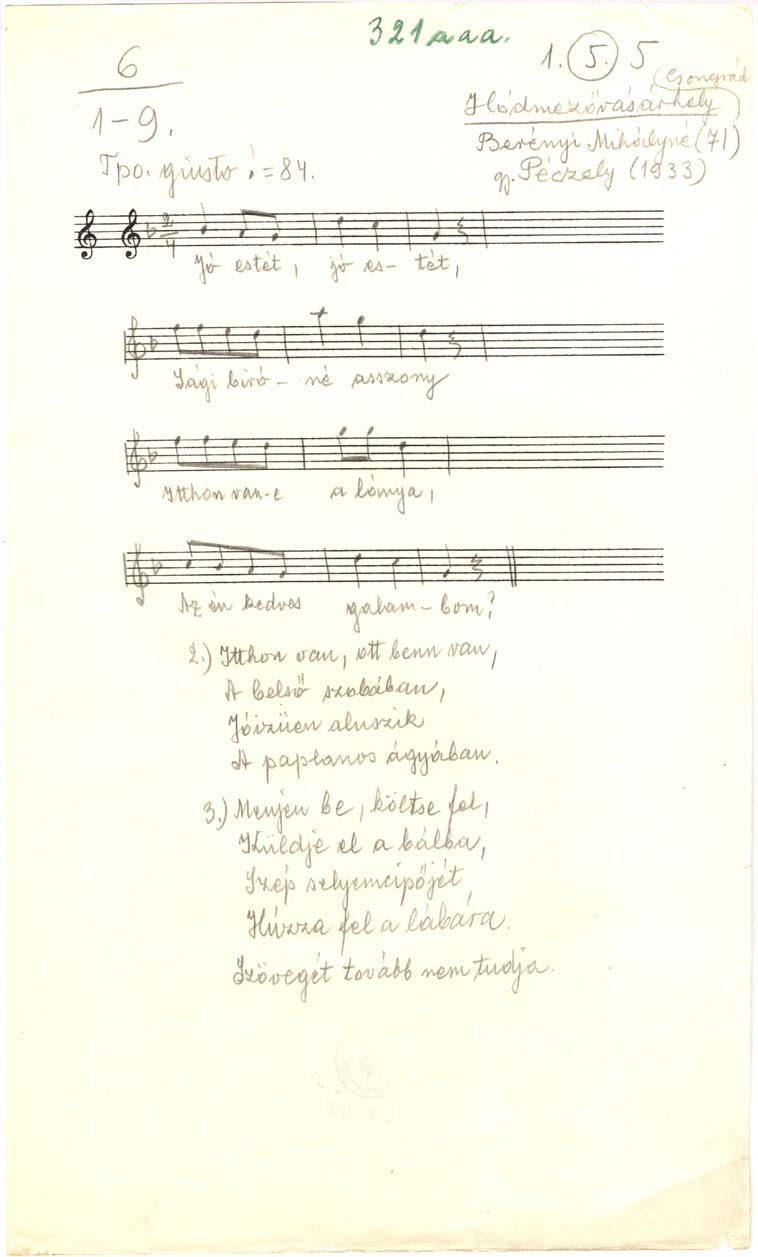 321 aaa.
6
1-9.
1. 5. 5
Csongrád
Hódmezővásárhely
Berényi Mihályné (71)
gy. Péczely (1933)
Tpo. giusto ♩=84.
2/4
Jó estét, jó es- tét,
Sági biró- né asszony
Itthon van-e a lánya,
Az én kedves galam- bom?
2.) Itthon van, ott benn van,
A belső szobában,
Jóizüen aluszik
A paplanos ágyában.
3.) Menjen be, költse fel,
Küldje el a bálba,
Szép selyemcipőjét
Húzza fel a lábára.
Szövegét tovább nem tudja.